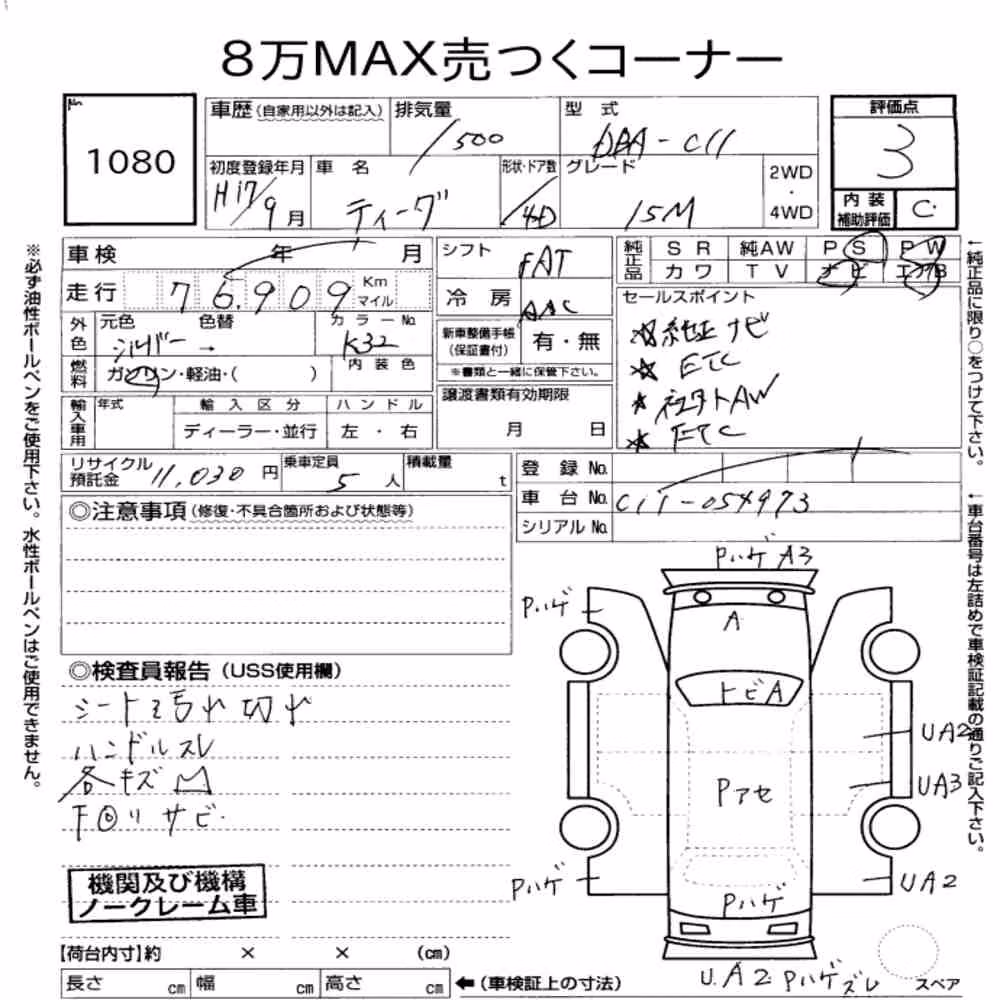 8万MAX売つくコーナー
No. 1080
車歴(自家用以外は記入) 排気量 1500 型式 DBA-C11 評価点 3
初度登録年月 H17/9月 車名 ティーダ 形状・ドア数 /4D グレード 15M 2WD・4WD 内装補助評価 C
車検 年 月 シフト FAT 純正品 SR 純AW PS PW
走行 76,909 Km マイル 冷房 AAC カワ TV ナビ エアB
外色 元色 シルバー 色替 → カラーNo. K32
新車整備手帳(保証書付) 有・無
※書類と一緒に保管下さい。
セールスポイント
☆純正ナビ
☆ETC
☆社外AW
☆ETC
燃料 ガソリン・軽油・( ) 内装色
譲渡書類有効期限 月 日
輸入車用 年式 輸入区分 ハンドル
ディーラー・並行 左・右
リサイクル預託金 11,030円 乗車定員 5人 積載量 t
登録No.
車台No. C11-054973
シリアルNo.
◎注意事項(修復・不具合箇所および状態等)
◎検査員報告(USS使用欄)
シートヨゴレ切レ
ハンドルスレ
各キズ凹
下回リサビ
機関及び機構
ノークレーム車
【荷台内寸】約 × × (cm)
長さ cm 幅 cm 高さ cm ←(車検証上の寸法)
Pハゲ A3
Pハゲ
A
トビA
UA2
UA3
Pアセ
Pハゲ
UA2
Pハゲ
U.A2 Pハゲズレ
スペア
※必ず油性ボールペンをご使用下さい。水性ボールペンはご使用できません。
←純正品に限り○をつけて下さい。
←車台番号は左詰めで車検証記載の通りご記入下さい。